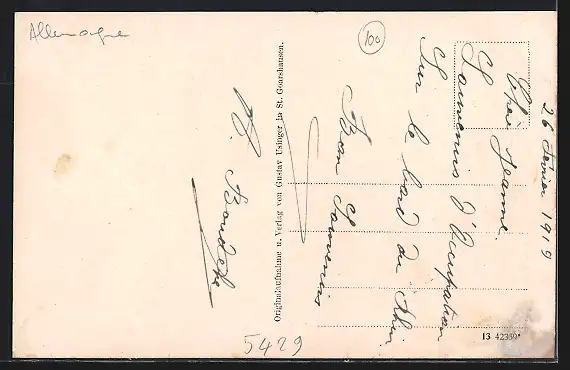 Allemagne
100
26 Fevrier 1919
Chère Jeanne.
Souvenirs d'Occupation
Sur le bord du Rhin
Bon Souvenirs
Originalaufnahme u. Verlag von Gustav Usinger in St. Goarshausen.
5429
13 42359*